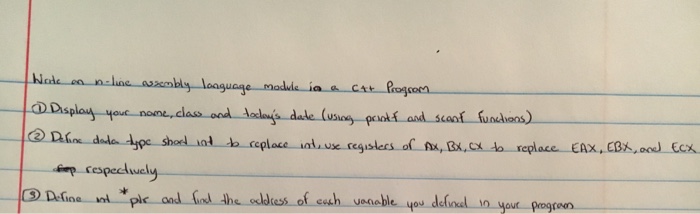 Write an n-line assembly language module in a C++ Program
① Display your name, class and today's date (using printf and scanf functions)
② Define data type short int to replace int, use registers of AX, BX, CX to replace EAX, EBX, and ECX
respectively
③ Define int *ptr and find the address of each variable you defined in your program